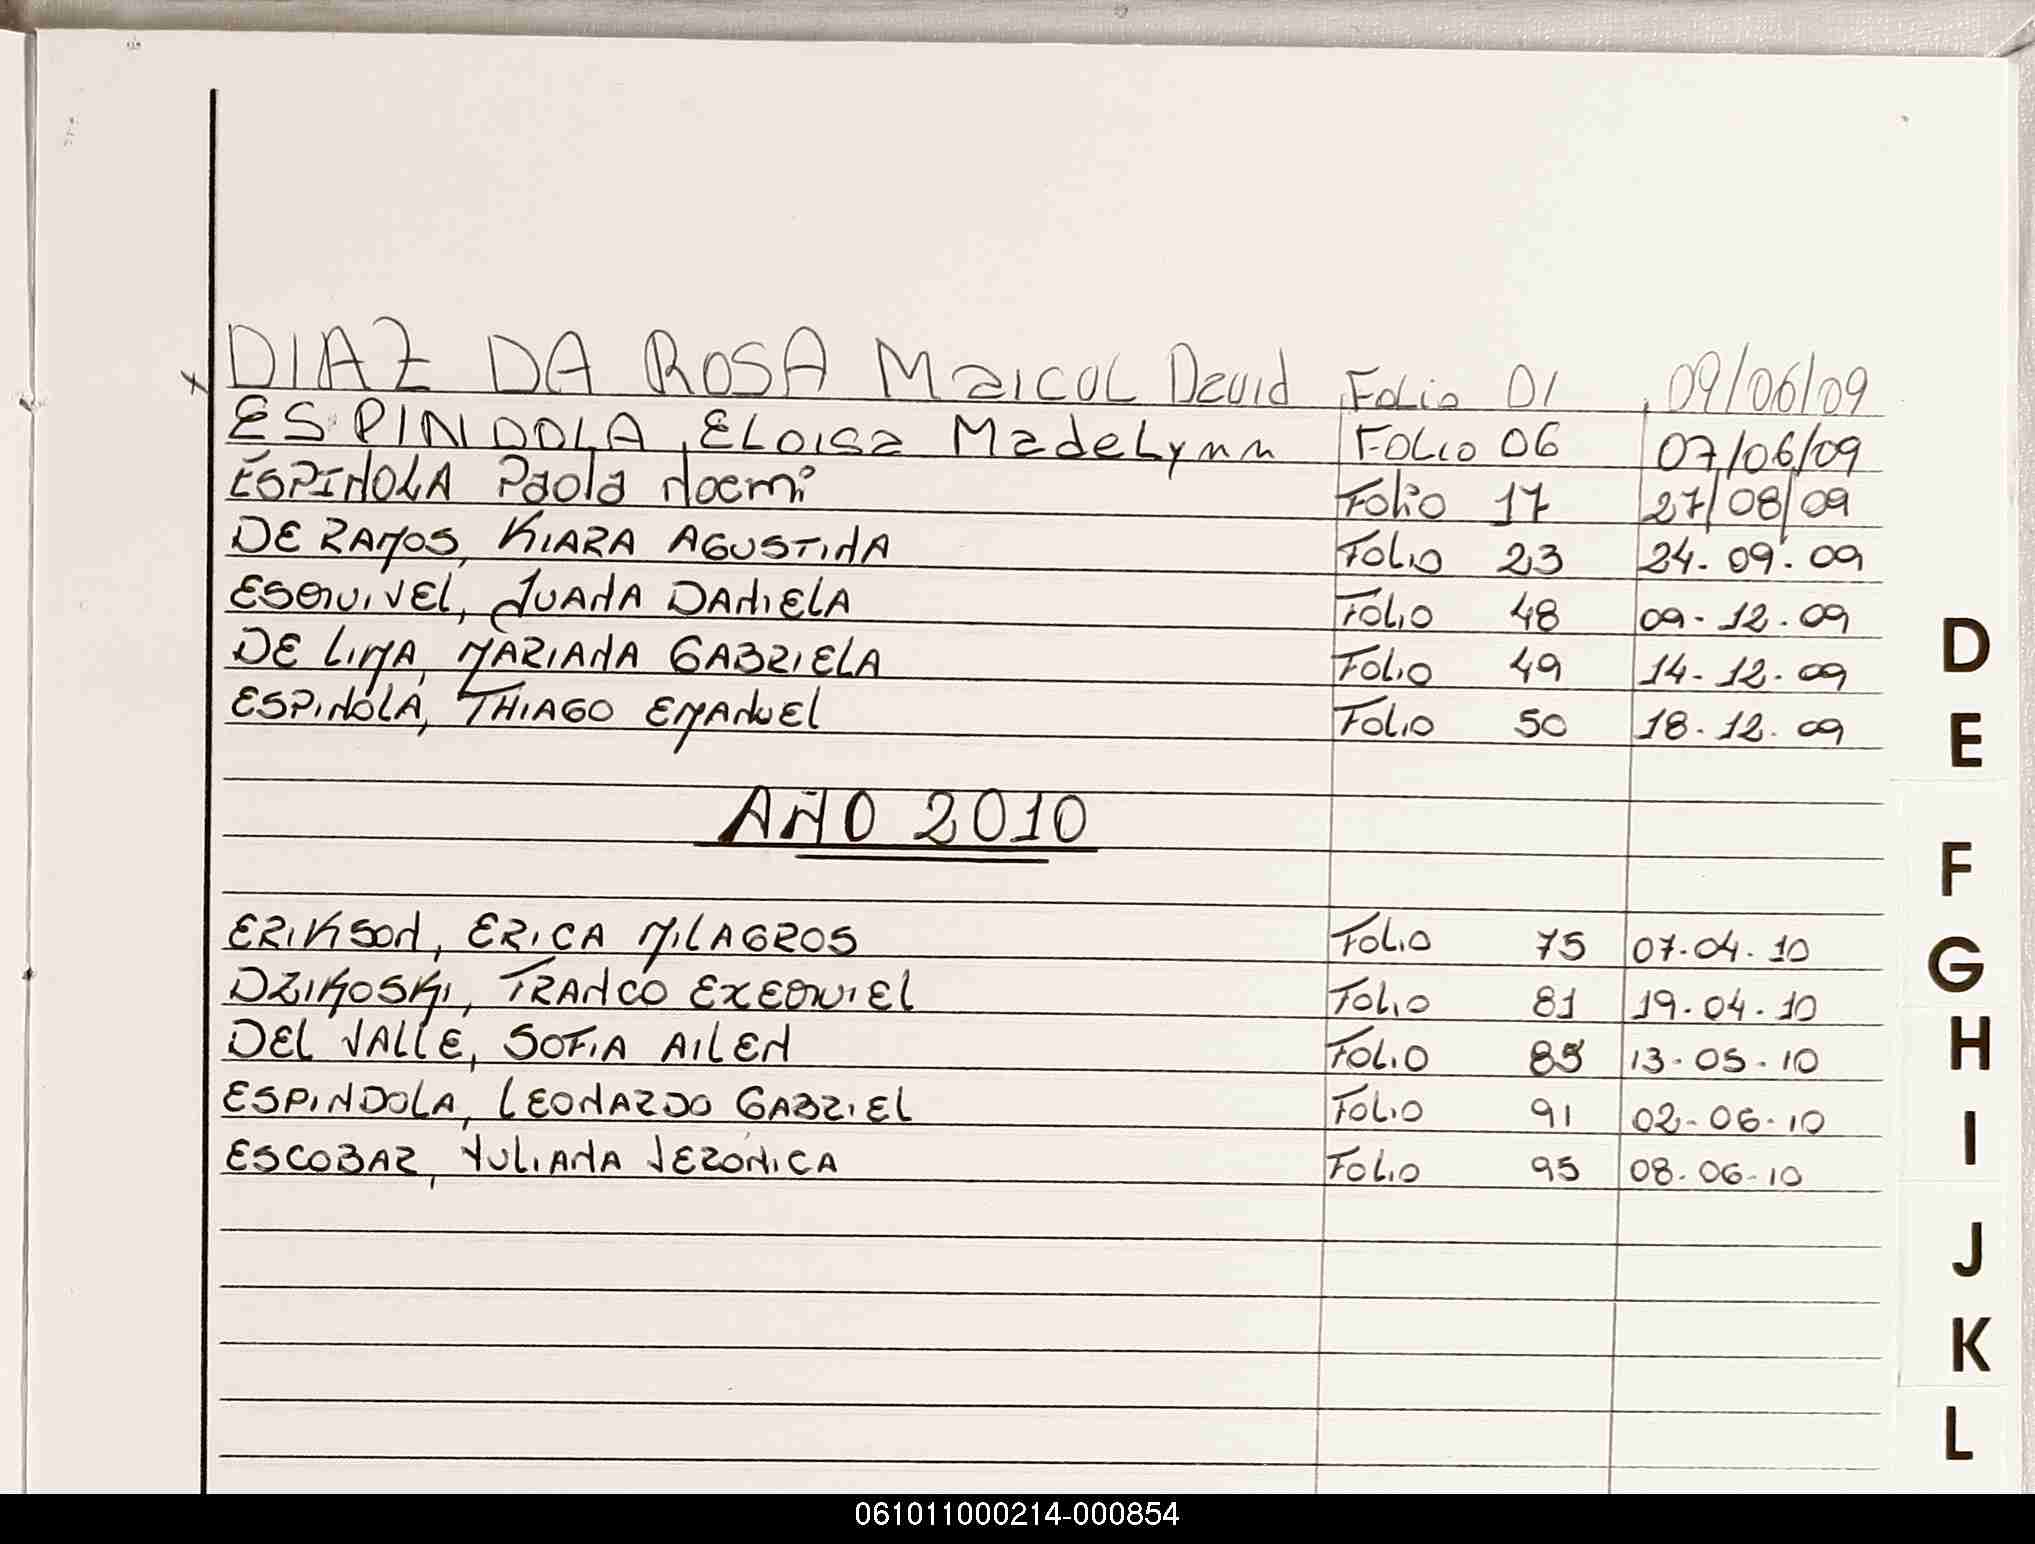 x DIAZ DA ROSA Maicol David Folio 01 09/06/09
ESPINDOLA, ELoisa MadeLynn Folio 06 07/06/09
ESPINOLA Paola Noemi Folio 17 27/08/09
DE RAMOS, KIARA AGUSTINA Folio 23 24-09-09
ESQUIVEL, JUANA DANIELA Folio 48 09-12-09
DE LIMA, MARIANA GABRIELA Folio 49 14-12-09
ESPINOLA, THIAGO EMANUEL Folio 50 18-12-09
AÑO 2010
ERIKSON, ERICA MILAGROS Folio 75 07-04-10
DZIKOSKI, FRANCO EXEQUIEL Folio 81 19-04-10
DEL VALLE, SOFIA AILEN Folio 85 13-05-10
ESPINDOLA, LEONARDO GABRIEL Folio 91 02-06-10
ESCOBAR, JULIANA VERONICA Folio 95 08-06-10
D
E
F
G
H
I
J
K
L
061011000214-000854